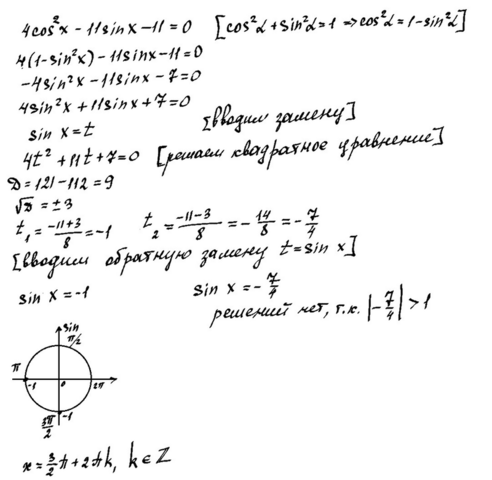 4cos²x - 11sinx - 11 = 0 [cos²α + sin²α = 1 ⇒ cos²α = 1 - sin²α]
4(1 - sin²x) - 11sinx - 11 = 0
-4sin²x - 11sinx - 7 = 0
4sin²x + 11sinx + 7 = 0
sin x = t [вводим замену]
4t² + 11t + 7 = 0 [решаем квадратное уравнение]
D = 121 - 112 = 9
√D = ±3
t₁ = (-11+3)/8 = -1 t₂ = (-11-3)/8 = -14/8 = -7/4
[вводим обратную замену t = sin x]
sin x = -1 sin x = -7/4
решений нет, т.к. |-7/4| > 1
sin
π/2
π
-1 0 2π
3π/2 -1
x = 3/2 π + 2πk, k ∈ Z